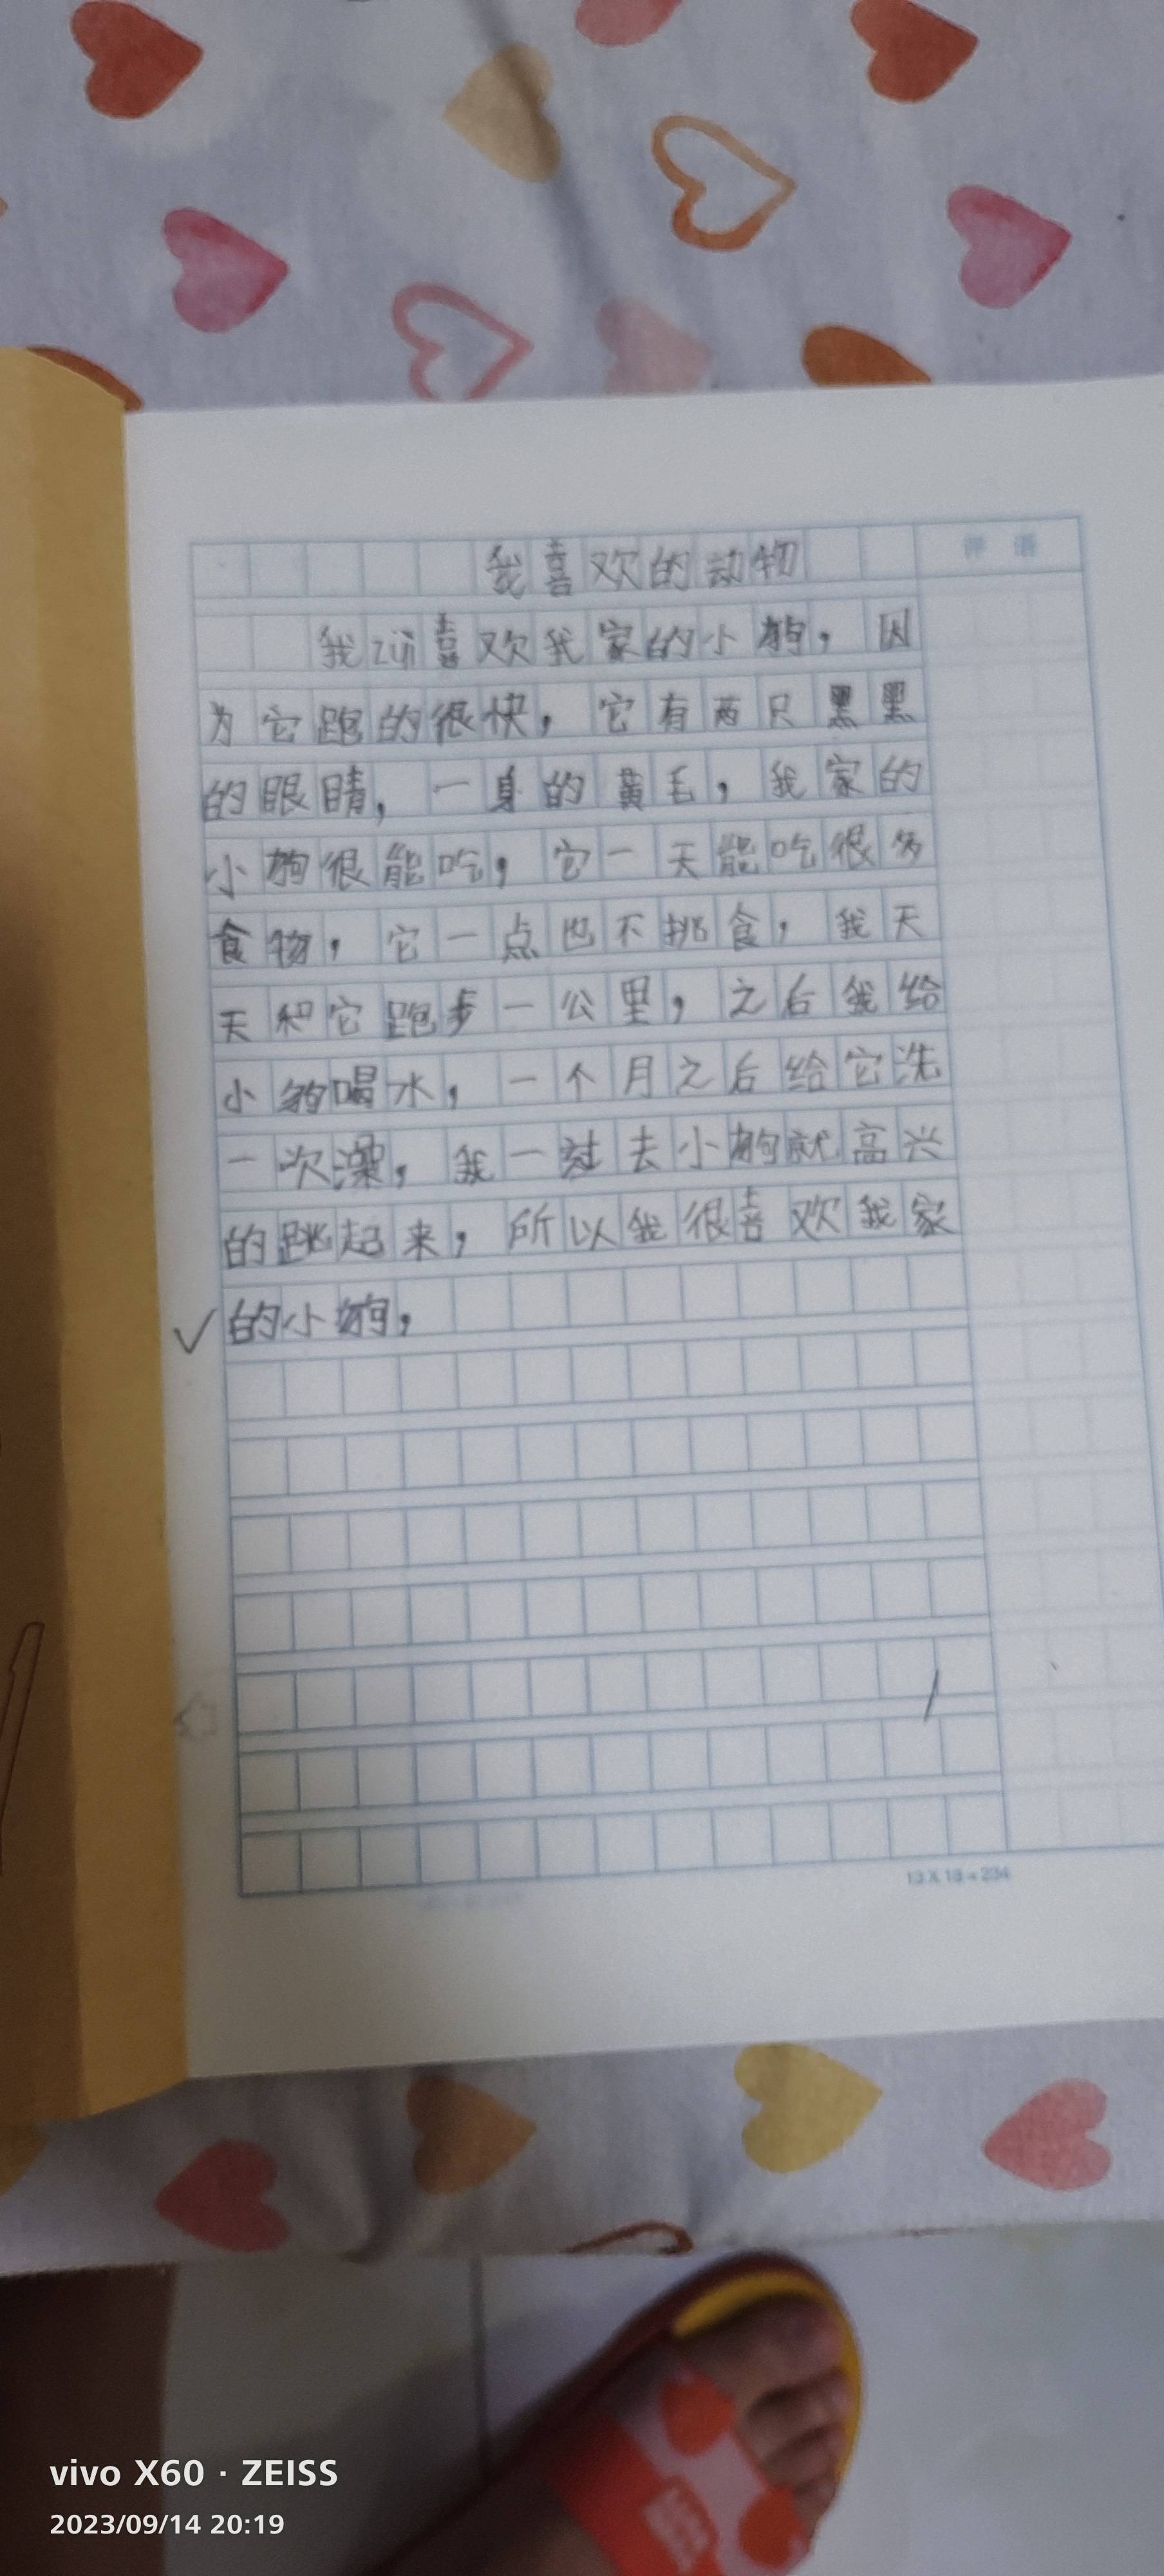 我喜欢的动物
评语
我zuì喜欢我家的小狗，因
为它跑的很快，它有两只黑黑
的眼睛，一身的黄毛，我家的
小狗很能吃，它一天能吃很多
食物，它一点也不挑食，我天
天和它跑步一公里，之后我给
小狗喝水，一个月之后给它洗
一次澡，我一过去小狗就高兴
的跳起来，所以我很喜欢我家
的小狗，
13×18=234
vivo X60 · ZEISS
2023/09/14 20:19